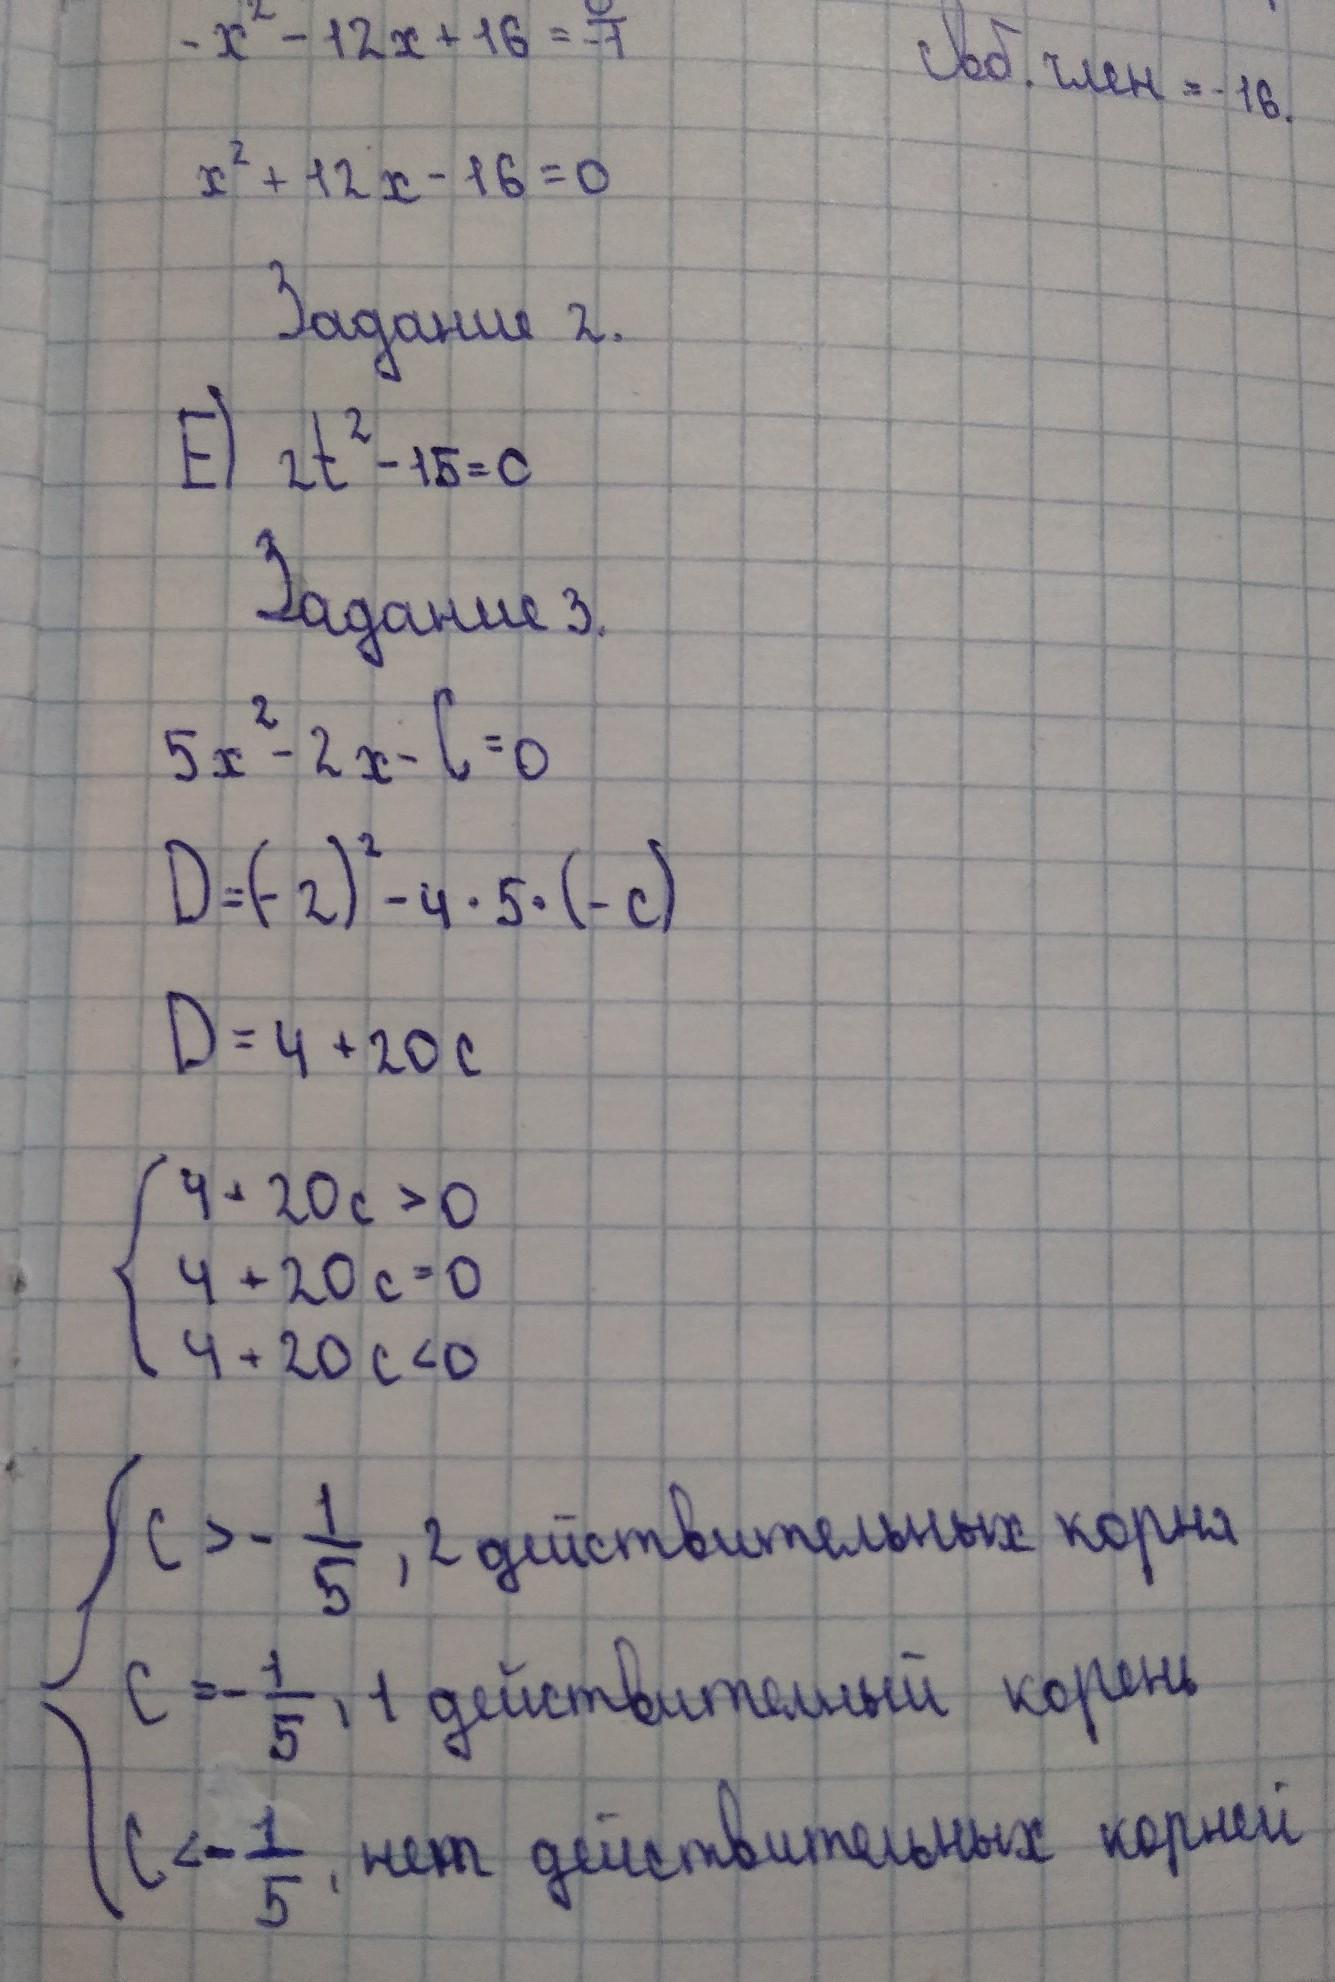 -x² - 12x + 16 = 0/-1
Своб. член = -16.
x² + 12x - 16 = 0
Задание 2.
E) 2t² - 15 = 0
Задание 3.
5x² - 2x - C = 0
D = (-2)² - 4 · 5 · (-c)
D = 4 + 20c
{ 4 + 20c > 0
4 + 20c = 0
4 + 20c < 0
{ C > - 1/5, 2 действительных корня
C = - 1/5, 1 действителный корень
C < - 1/5, нет действительных корней